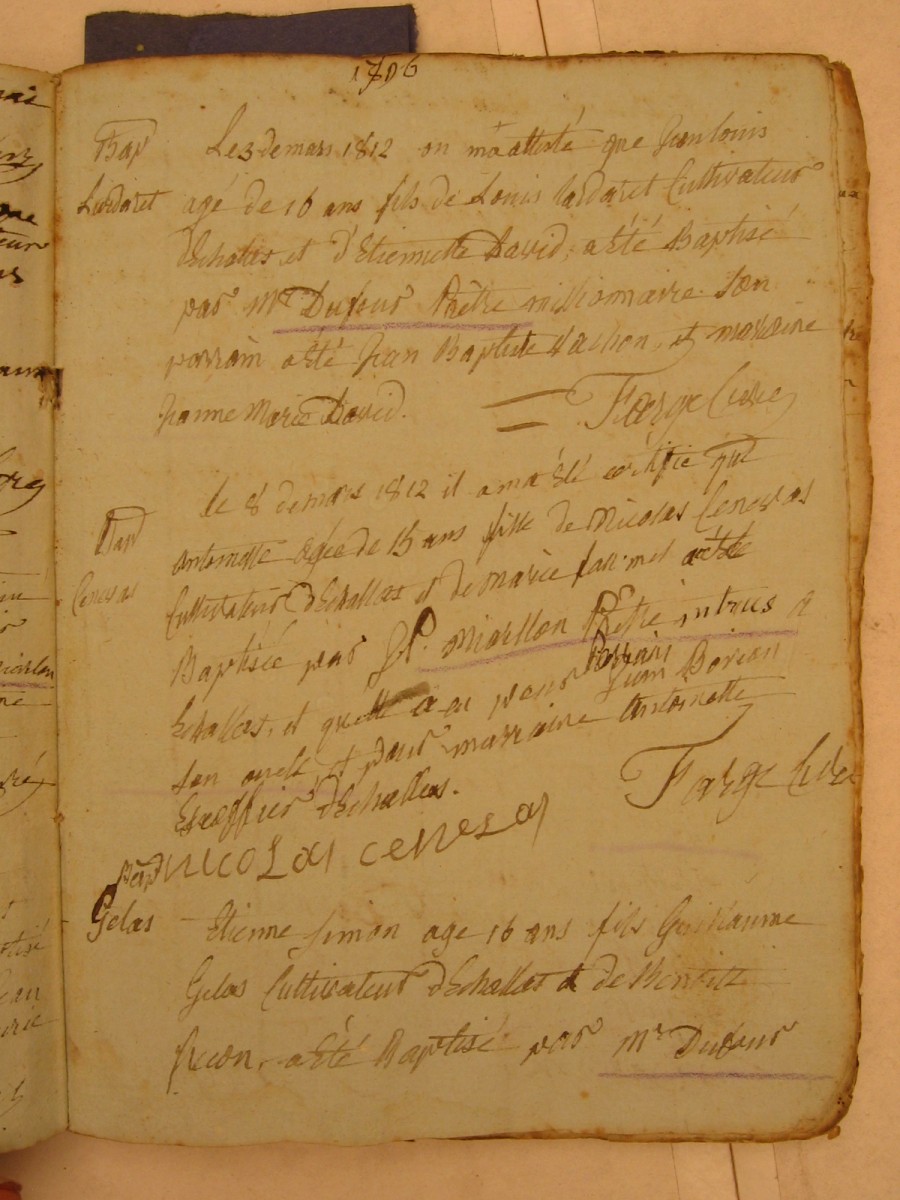 1796
Bap Le 3 de mars 1812 on m'a attesté que Jean louis
Lardaret agé de 16 ans fils de Louis lardaret Cultivateur
d'Echalas, et d'Etiennette David, a été Baptisé
par Mr Dufour Prêtre missionnaire son
parrain a été Jean Baptiste Vachon, et marraine
Jeanne Marie David. Farge Curé
Bap le 8 de mars 1812 il a m'a été certifié que
Antoinette agée de 15 ans fille de Nicolas Cenesas
Cenesas Cultivateur d'Echallas et de Marie a été
Baptisée par Prêtre intrus a
Echallas, et quelle a eu pour Parrain Jean
son oncle et pour marraine Antoinette
d'Echallas. Farge Curé
nicolas cenesas
Bap
Gelas Etienne simon age 16 ans fils Guillaume
Gelas Cultivateur d'Echallas & de Benoite
a été Baptisé par Mr Dufour